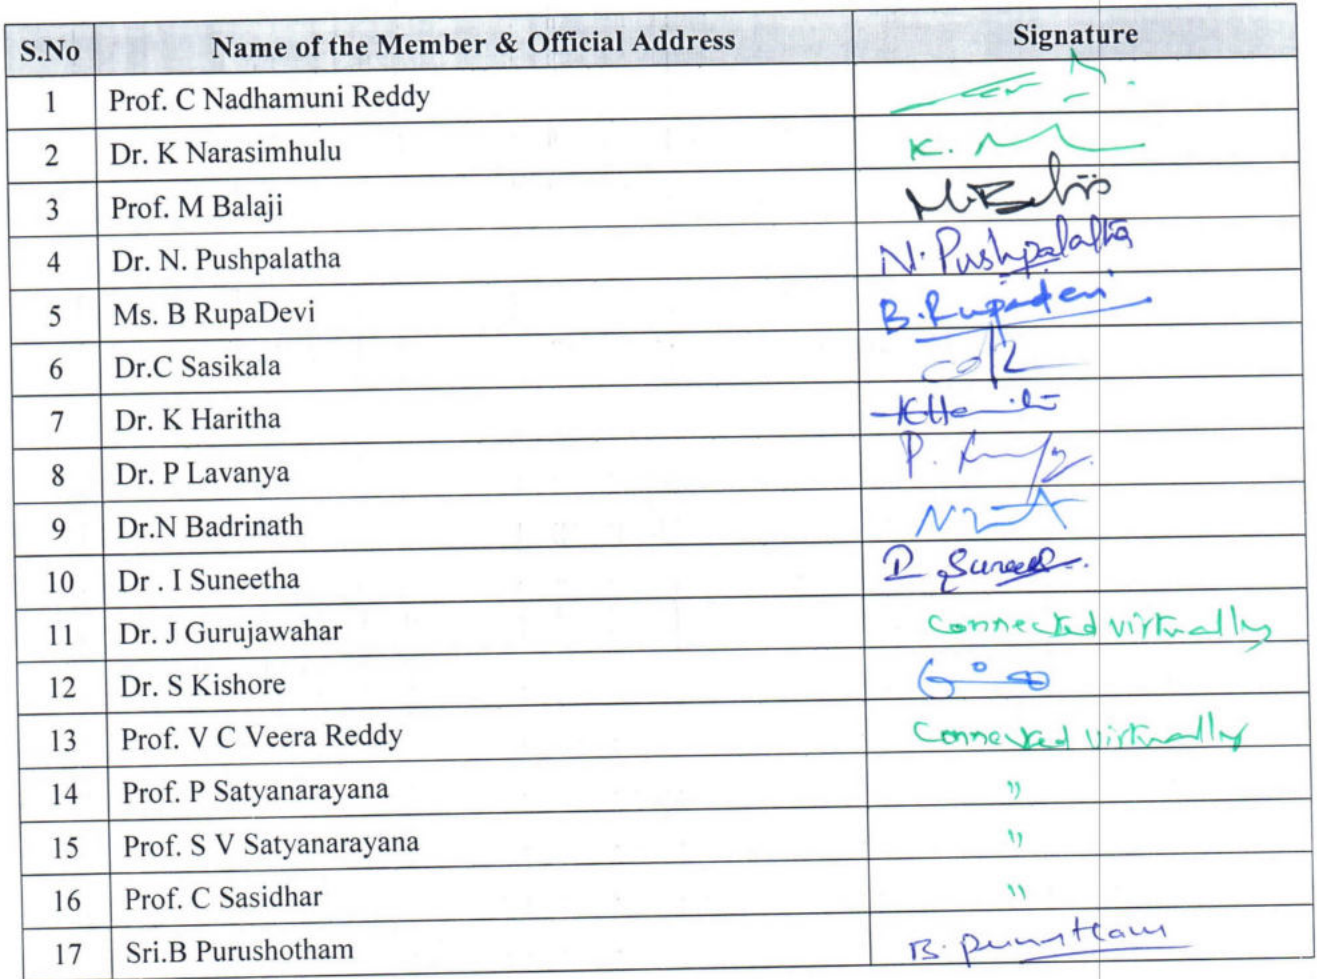 S.No Name of the Member & Official Address Signature
1 Prof. C Nadhamuni Reddy
2 Dr. K Narasimhulu K.
3 Prof. M Balaji M.
4 Dr. N. Pushpalatha N. Pushpalatha
5 Ms. B RupaDevi B. Rupadevi
6 Dr.C Sasikala
7 Dr. K Haritha
8 Dr. P Lavanya P.
9 Dr.N Badrinath
10 Dr . I Suneetha I
11 Dr. J Gurujawahar Connected virtually
12 Dr. S Kishore
13 Prof. V C Veera Reddy Connected virtually
14 Prof. P Satyanarayana "
15 Prof. S V Satyanarayana "
16 Prof. C Sasidhar "
17 Sri.B Purushotham B.